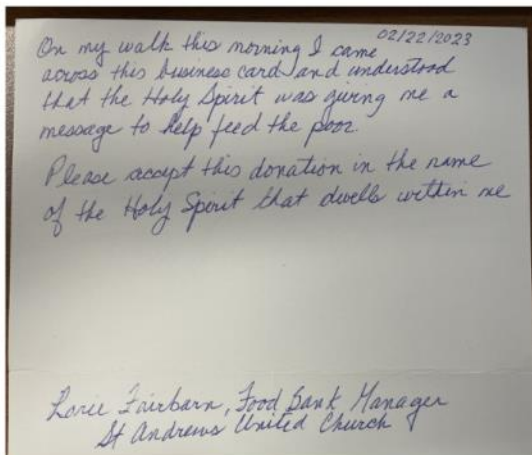 02/22/2023
On my walk this morning I came
across this business card and understood
that the Holy Spirit was giving me a
message to help feed the poor.
Please accept this donation in the name
of the Holy Spirit that dwells within me
Lorie Fairbarn, Food Bank Manager
St Andrews United Church